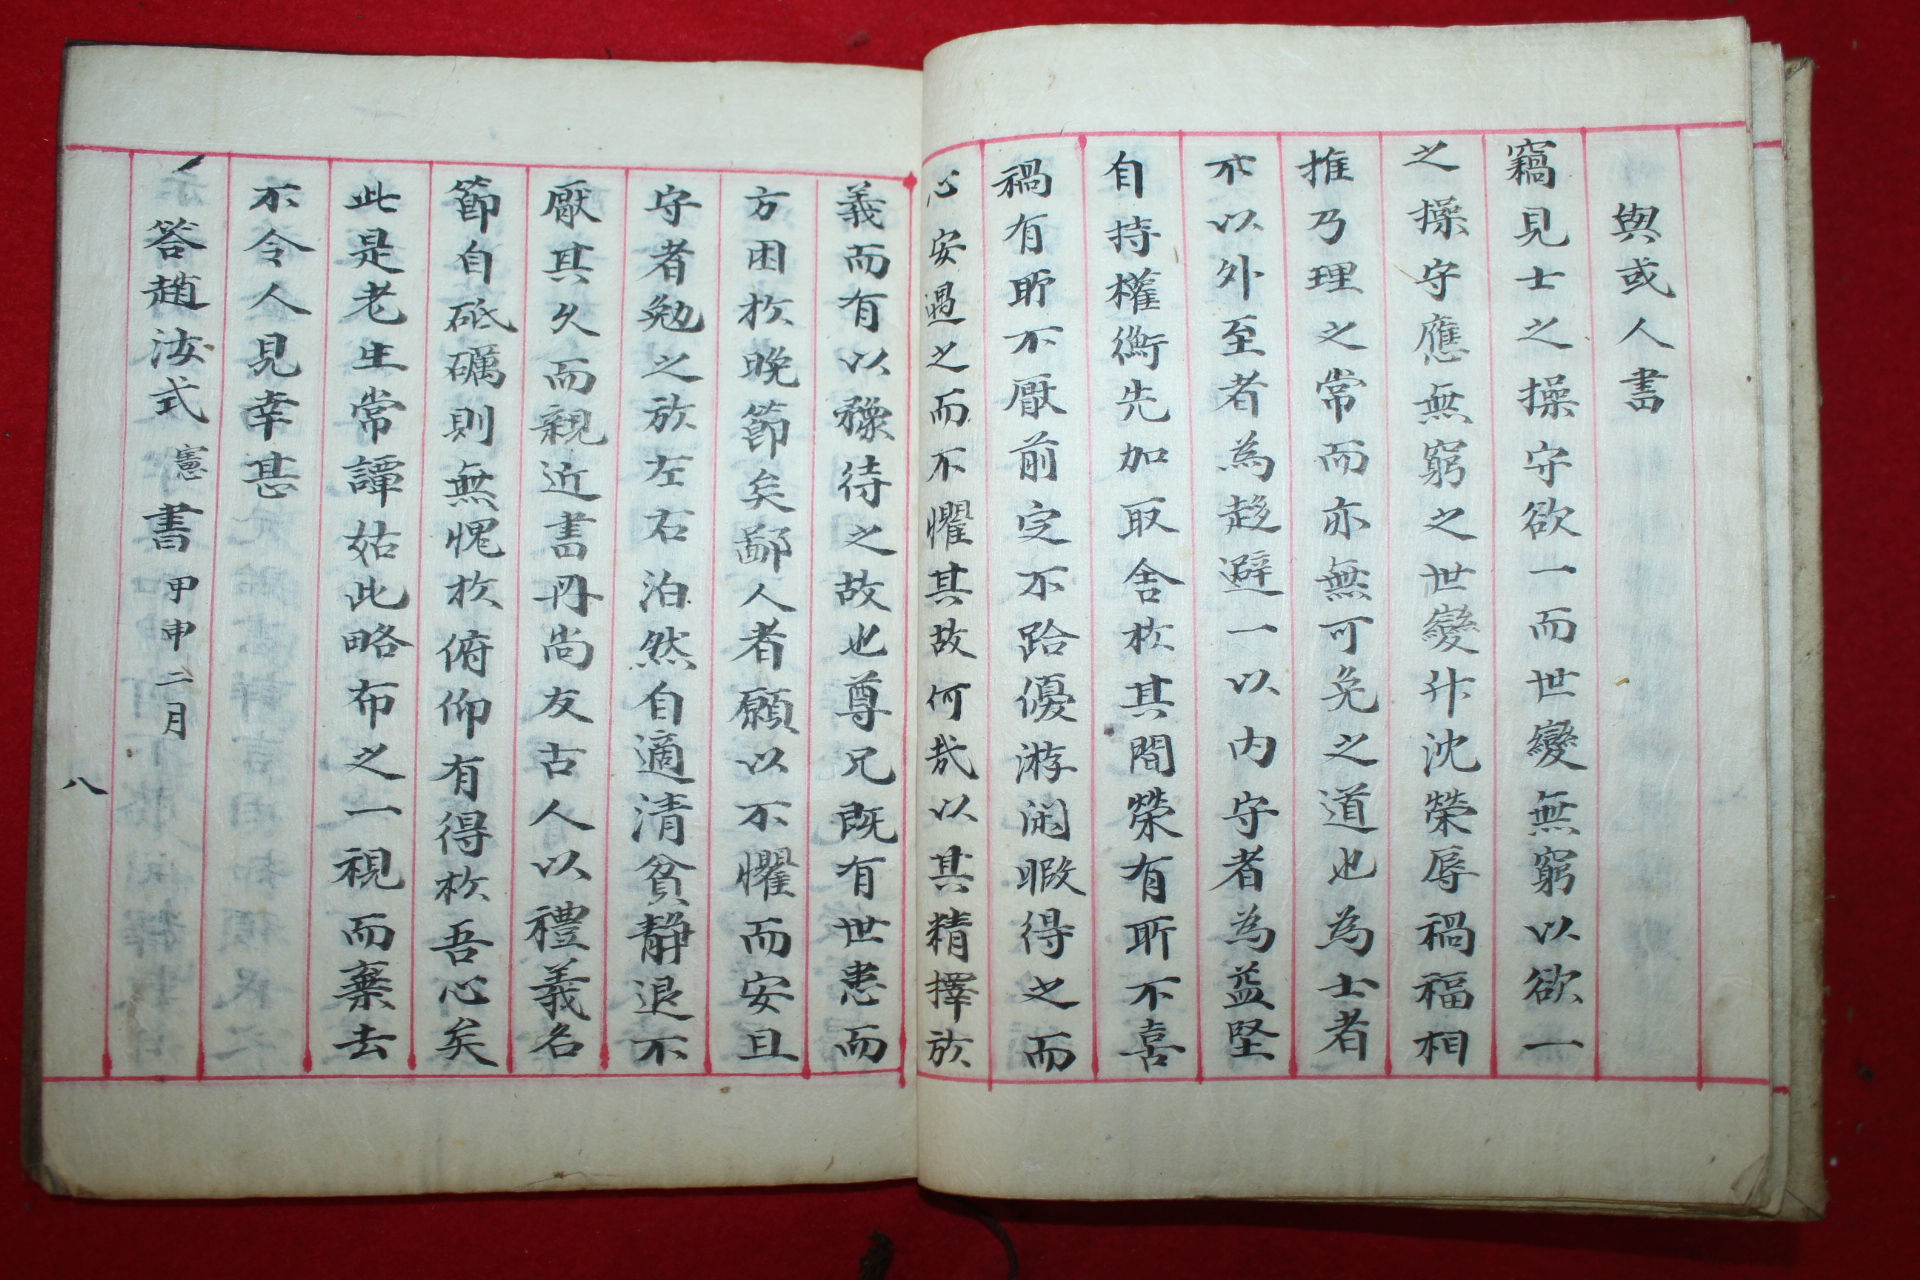 與或人書
竊見士之操守欲一而世變無窮以欲一
之操守應無窮之世變升沈榮辱禍福相
推乃理之常而亦無可免之道也為士者
不以外至者為趍避一以內守者為益堅
自持權衡先加取舍於其間榮有所不喜
禍有所不厭前定不跲優游閑暇得之而
心安遇之而不懼其故何哉以其精擇於
義而有以豫待之故也尊兄既有世患而
方困於晩節矣鄙人者願以不懼而安且
守者勉之於左右泊然自適清貧靜退不
厭其久而親近書冊尚友古人以禮義名
節自砥礪則無愧於俯仰有得於吾心矣
此是老生常譚姑此略布之一視而棄去
不令人見幸甚
答趙汝式憲書甲申二月
八